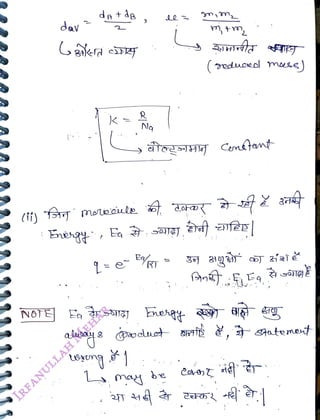 dav = dA + dB / 2 , μ = m1 m2 / m1 + m2
↳ औसत व्यास ↳ समानीत
(reduced mass)
K = R / NA
↳ बोल्ट्जमान Constant
(ii) जिन molecule की टक्कर हो रही है उनकी
Energy, Ea से ज्यादा होनी चाहिए|
q = e^-Ea/RT = उन अणुओं का अंश है
जिनकी E, Ea से ज्यादा है
NOTE Ea से ज्यादा Energy वाले अणु
always product बनाते हैं, ये statement
wrong है|
↳ may be टक्कर नहीं हो
या सही से टक्कर नहीं हो|
IRFANULLAH